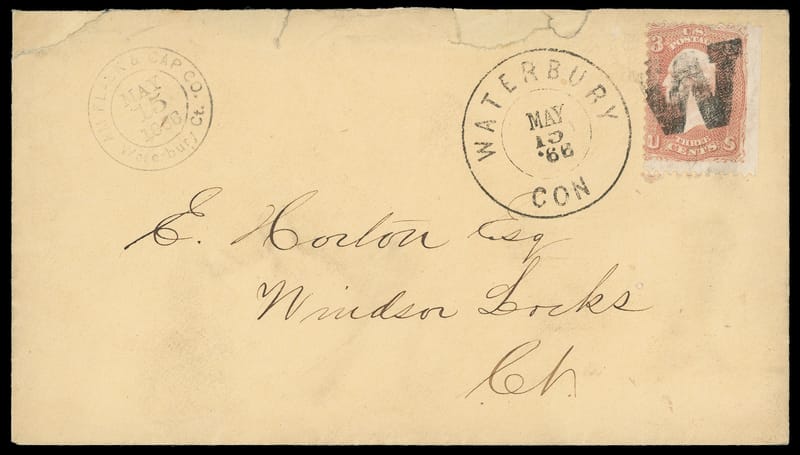 AM. FLASK & CAP CO.
MAY
15
1866
Waterbury Ct.
WATERBURY
MAY
15
'66
CON
3
U.S.
POSTAGE
W
U THREE S
CENTS
E. Horton Esq
Windsor Locks
Ct.